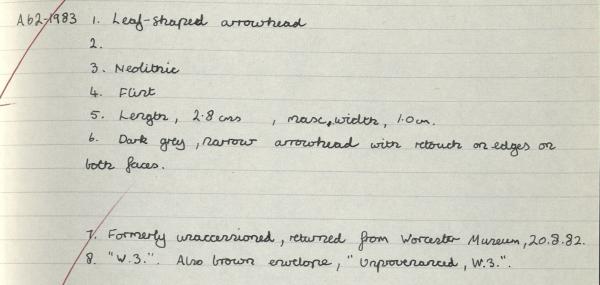 A62-1983 1. Leaf-shaped arrowhead
2.
3. Neolithic
4. Flint
5. Length, 2.8 cms , max, width, 1.0cm.
6. Dark grey, narrow arrowhead with retouch on edges on
both faces.
7. Formerly unaccessioned, returned from Worcester Museum, 20.8.82.
8. "W.3.". Also brown envelope, "Unprovenanced, W.3.".